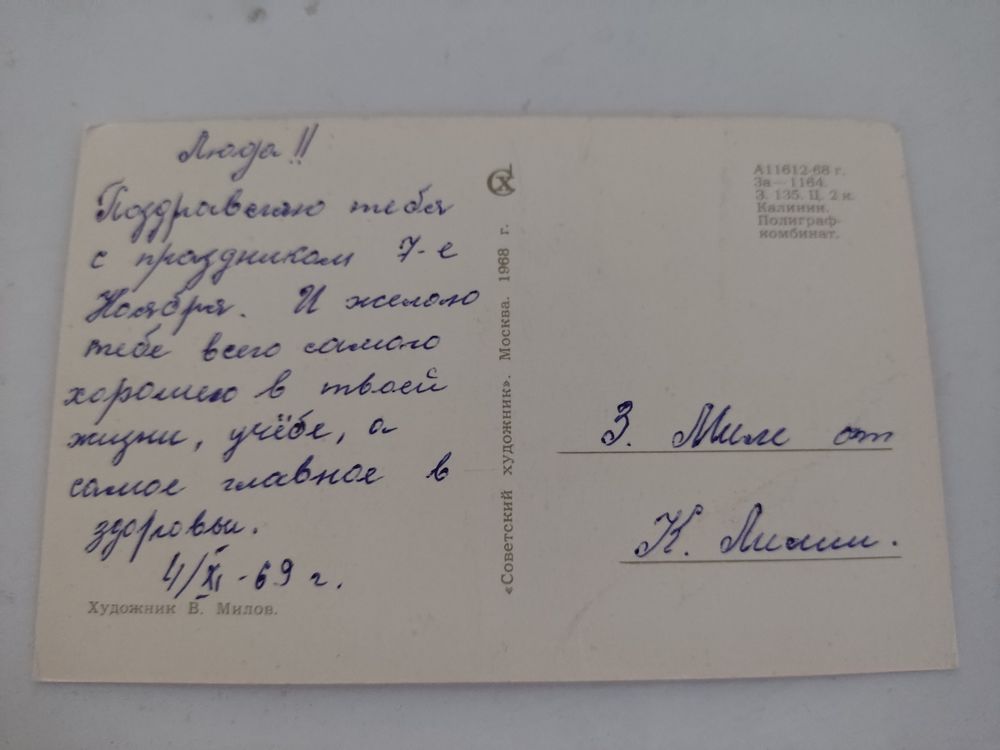 Люда!!
Поздравляю тебя
с праздником 7-е
Ноября. И желаю
тебе всего самого
хорошего в твоей
жизни, учёбе, а
самое главное в
здоровьи.
4/XI-69 г.
Художник В. Милов.
«Советский художник». Москва. 1968 г.
А11612-68 г.
За—1164.
З. 135. Ц. 2 к.
Калинин.
Полиграф-
комбинат.
З. Миле от
К. Лилии.